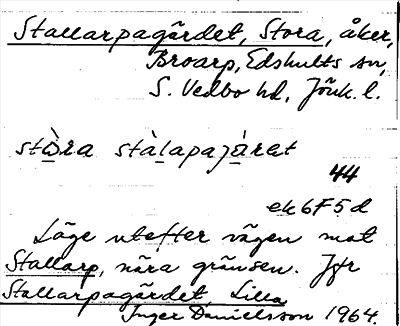 Stallarpagärdet, Stora, åker,
Broarp, Edshults sn,
S. Vedbo hd, Jönk. l.
stò̱ra stàḻapajä̱ret
44
ek 6F5d
Läge utefter vägen mot
Stallarp, nära gränsen. Jfr
Stallarpagärdet, Lilla
Inger Danielsson 1964.